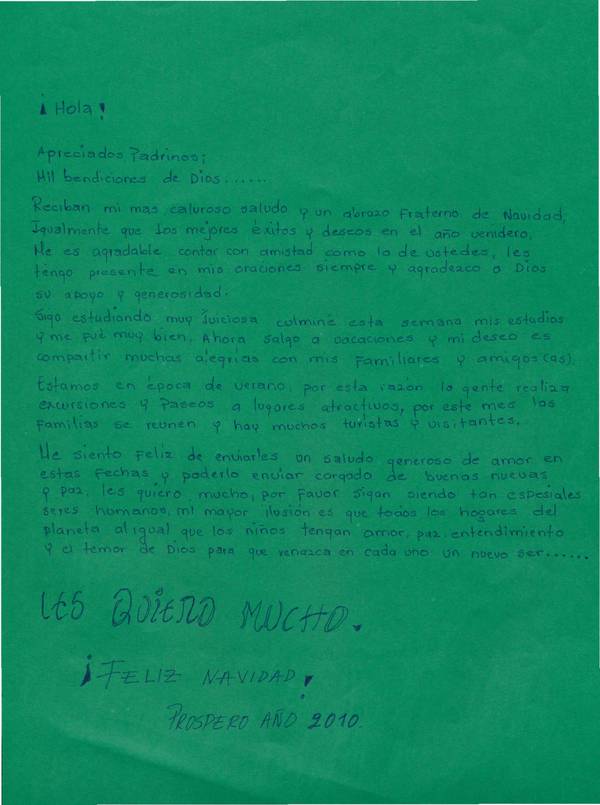 ¡Hola!
Apreciados Padrinos;
Mil bendiciones de Dios......
Reciban mi mas caluroso saludo y un abrazo Fraterno de Navidad,
Igualmente que los mejores éxitos y deseos en el año venidero.
Me es agradable contar con amistad como la de ustedes, les
tengo presente en mis oraciones siempre y agradezco a Dios
su apoyo y generosidad.
Sigo estudiando muy Juiciosa culminé esta semana mis estudios
y me fué muy bien. Ahora salgo a vacaciones y mi deseo es
compartir muchas alegrias con mis Familiares y amigos(as).
Estamos en época de verano, por esta razón la gente realiza
excursiones y Paseos a lugares atractivos, por este mes las
Familias se reunen y hay muchos turistas y visitantes.
Me siento Feliz de enviarles un saludo generoso de amor en
estas Fechas y poderlo enviar cargado de buenas nuevas
y paz, les quiero mucho, por Favor sigan siendo tan espesiales
seres humanos, mi mayor ilusión es que todos los hogares del
planeta al igual que los niños tengan amor, paz, entendimiento
y el temor de Dios para que renazca en cada uno un nuevo ser......
LES QUIERO MUCHO.
¡FELIZ NAVIDAD!
PROSPERO AÑO 2010.